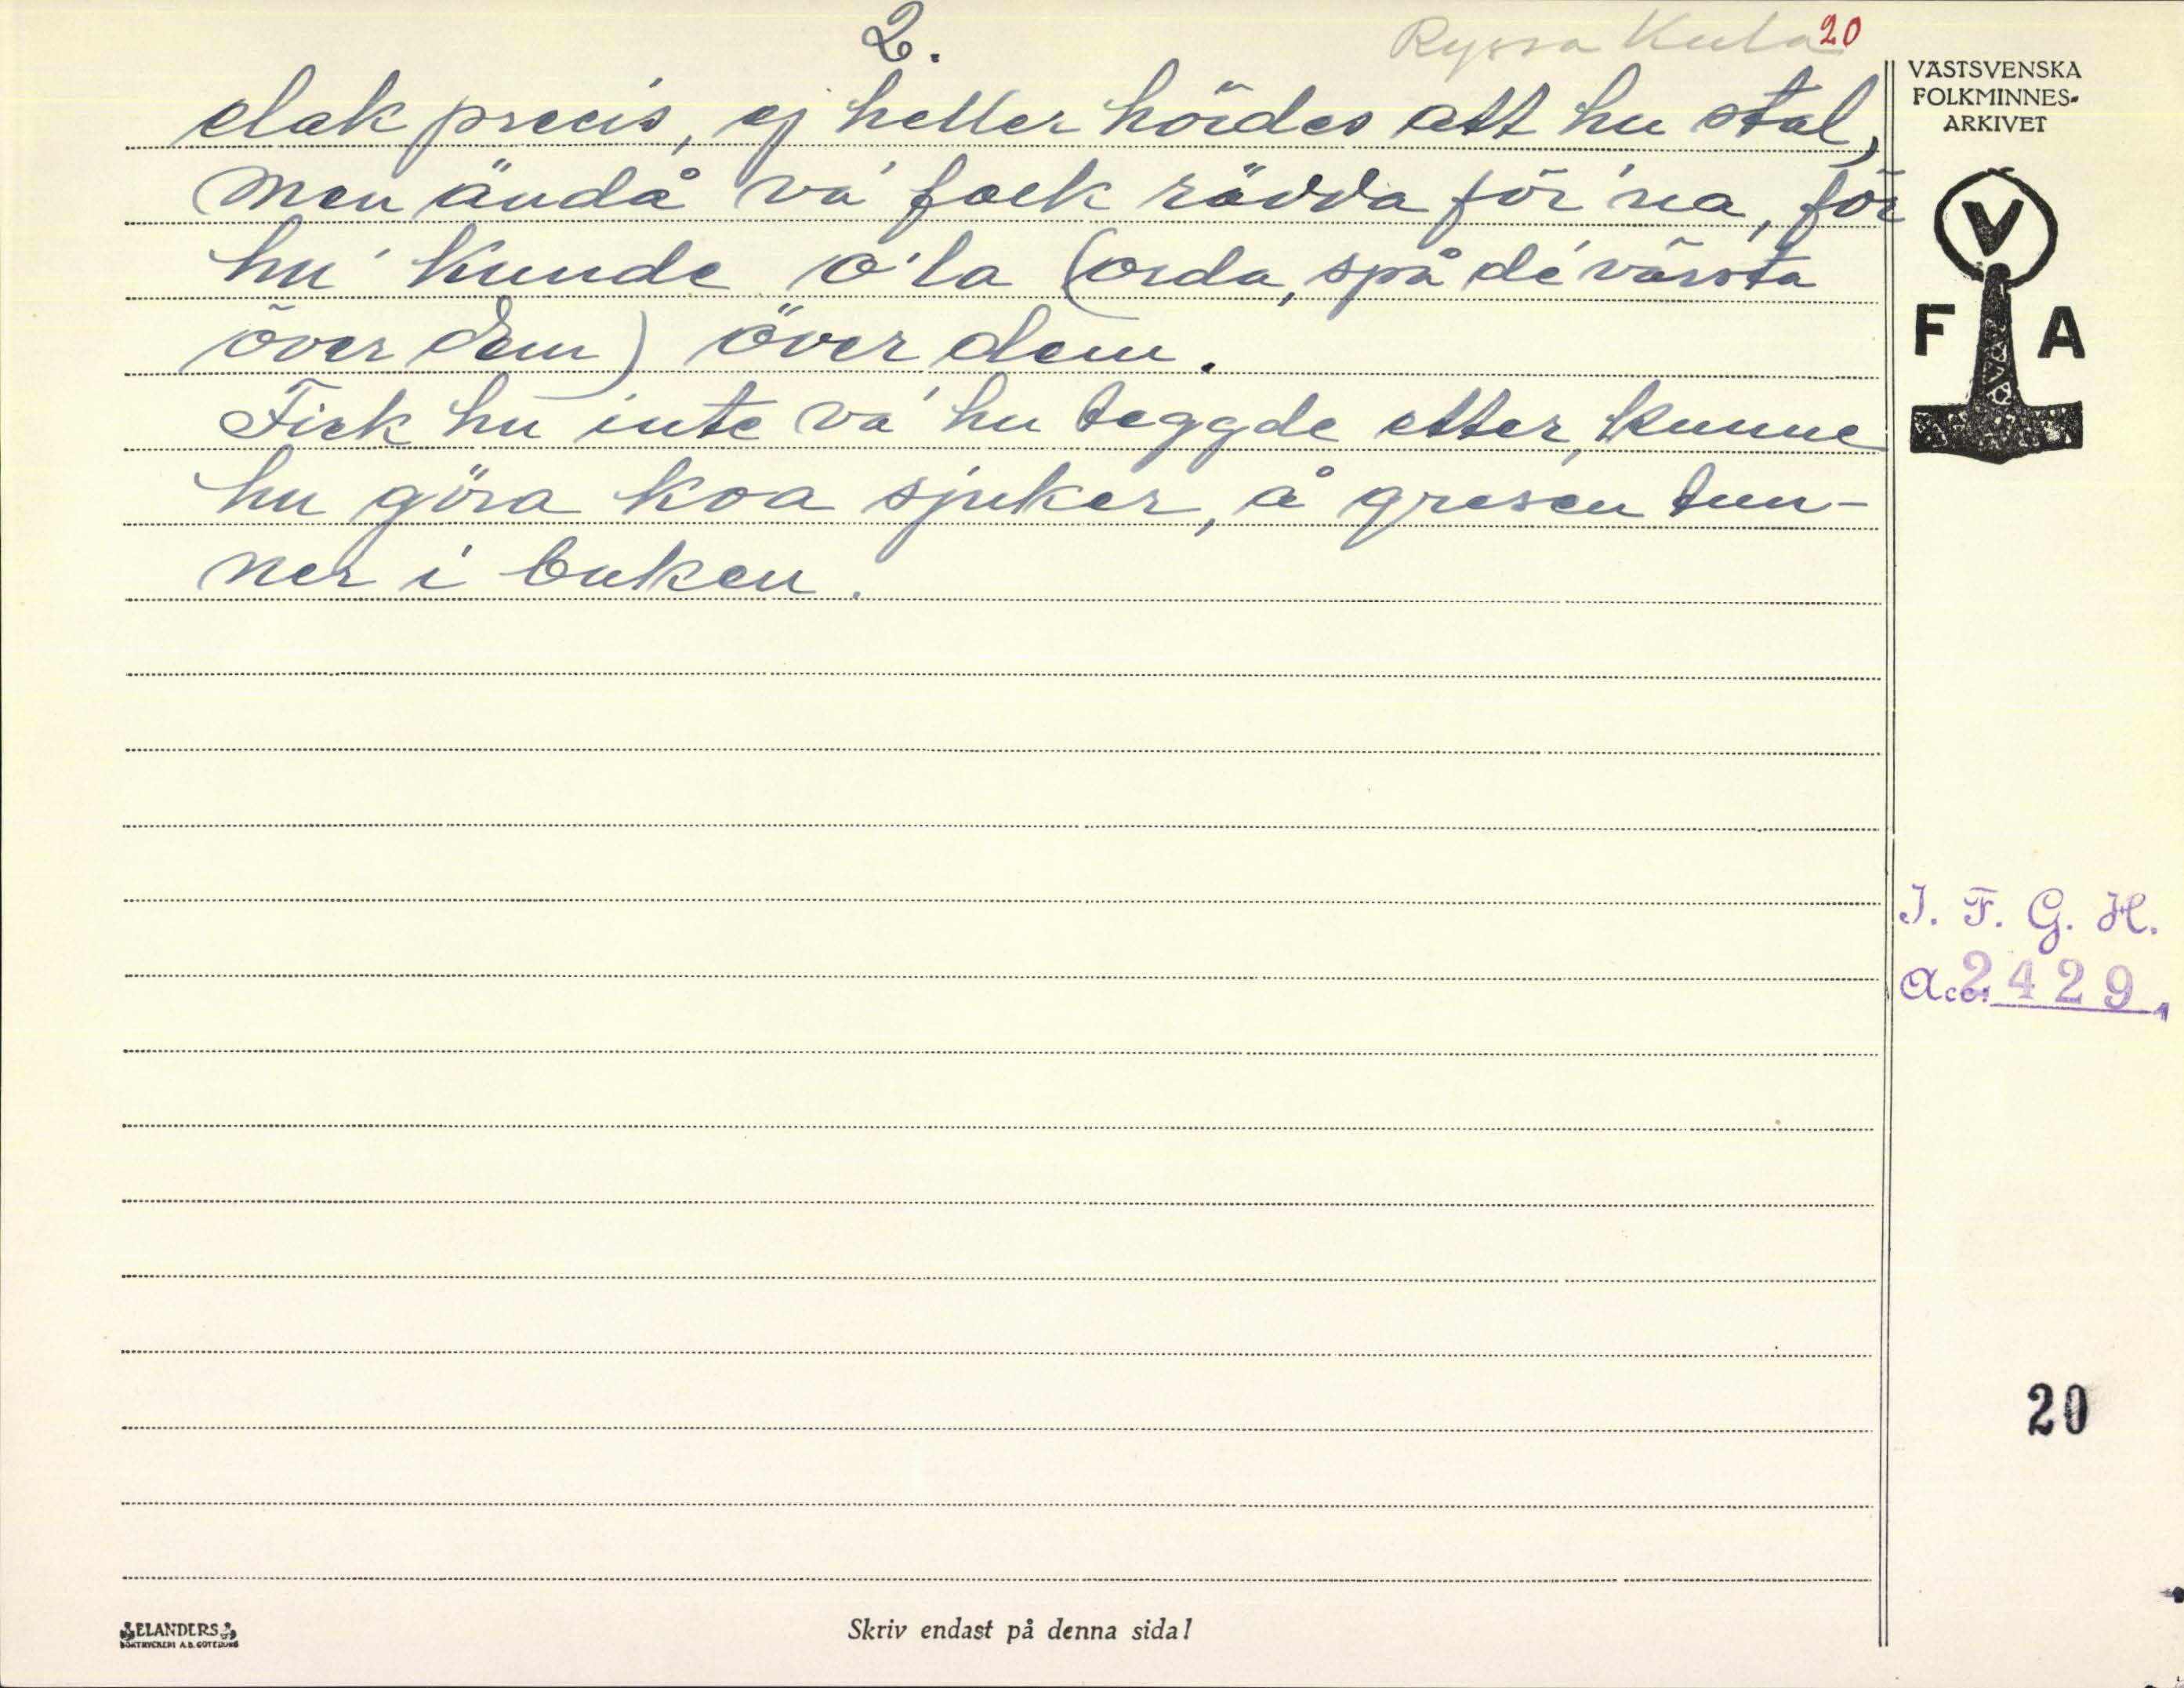 2.
Ryssa Kula 20
elak precis, ej heller hördes att hu stal,
men ändå va' folk rädda för'na, för
hu' kunde o'la (orda, spå de' värsta
över dem) över dem.
Fick hu inte va' hu teggde etter, kunne
hu göra koa sjuker, å gresen tun-
ner i buken.
VÄSTSVENSKA
FOLKMINNES-
ARKIVET
V
F A
I. F. G. H.
Acc. 2429
20
ELANDERS
BOKTRYCKERI A.B. GÖTEBORG
Skriv endast på denna sida!